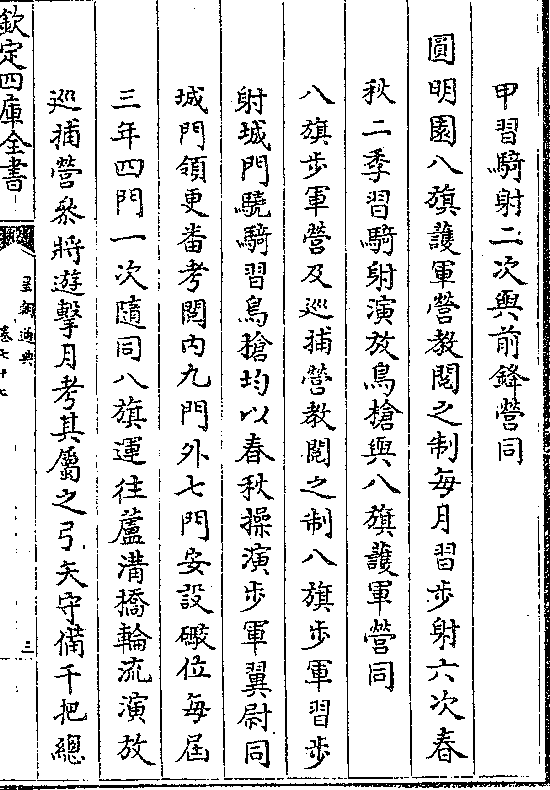 甲習騎射二次與前鋒營同
圓明園八旗護軍營教閲之制每月習步射六次春
秋二季習騎射演放鳥槍與八旗護軍營同
八旗步軍營及巡捕營教閲之制八旗步軍習步
射城門驍騎習鳥槍均以春秋操演步軍翼尉同
城門領更番考閲内九門外七門安設礮位每屆
三年四門一次隨同八旗運往蘆溝橋輪流演放
巡捕營叅將遊擊月考其屬之弓矢守備千把總
欽定四庫全書
皇朝通典
卷七十七
三